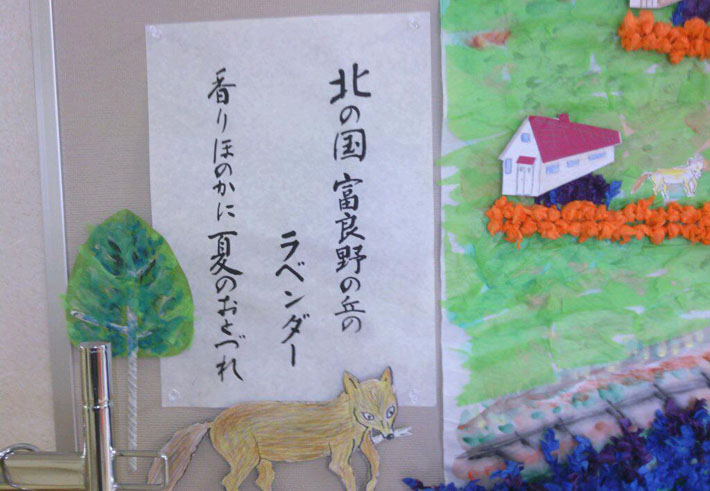 北の国富良野の丘の
ラベンダー
香りほのかに夏のおとづれ